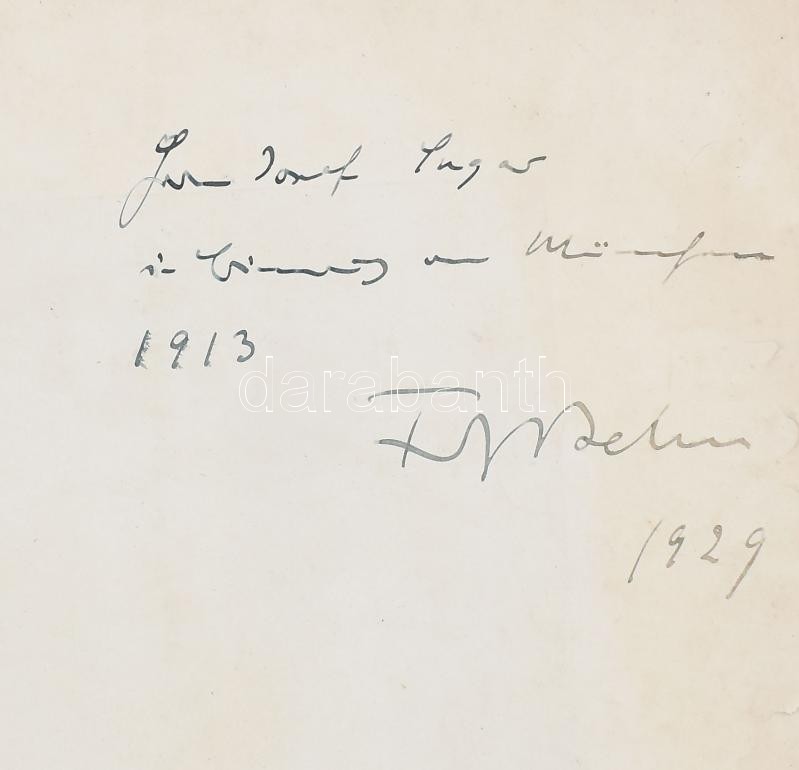 Herrn Josef Sugar
in Erinnerung an München
1913
darabanth
Fritz Behn
1929